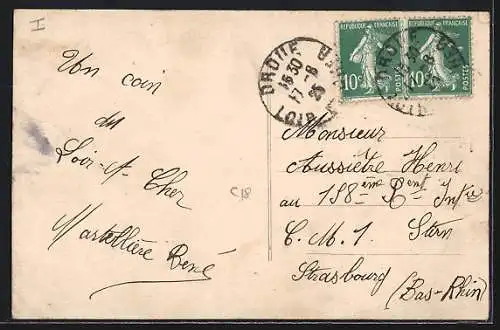 I
Un coin
du
Loir-&-Cher
Martellière René
C18
DROUE
15 30
17-8
25
LOIR
REPUBLIQUE FRANÇAISE
10c
POSTES
REPUBLIQUE FRANÇAISE
10c
POSTES
DROUE
Monsieur
Aussiètre Henri
au 158ème Rent Infie
C. M. 1. Stirn
Strasbourg
(Bas-Rhin)